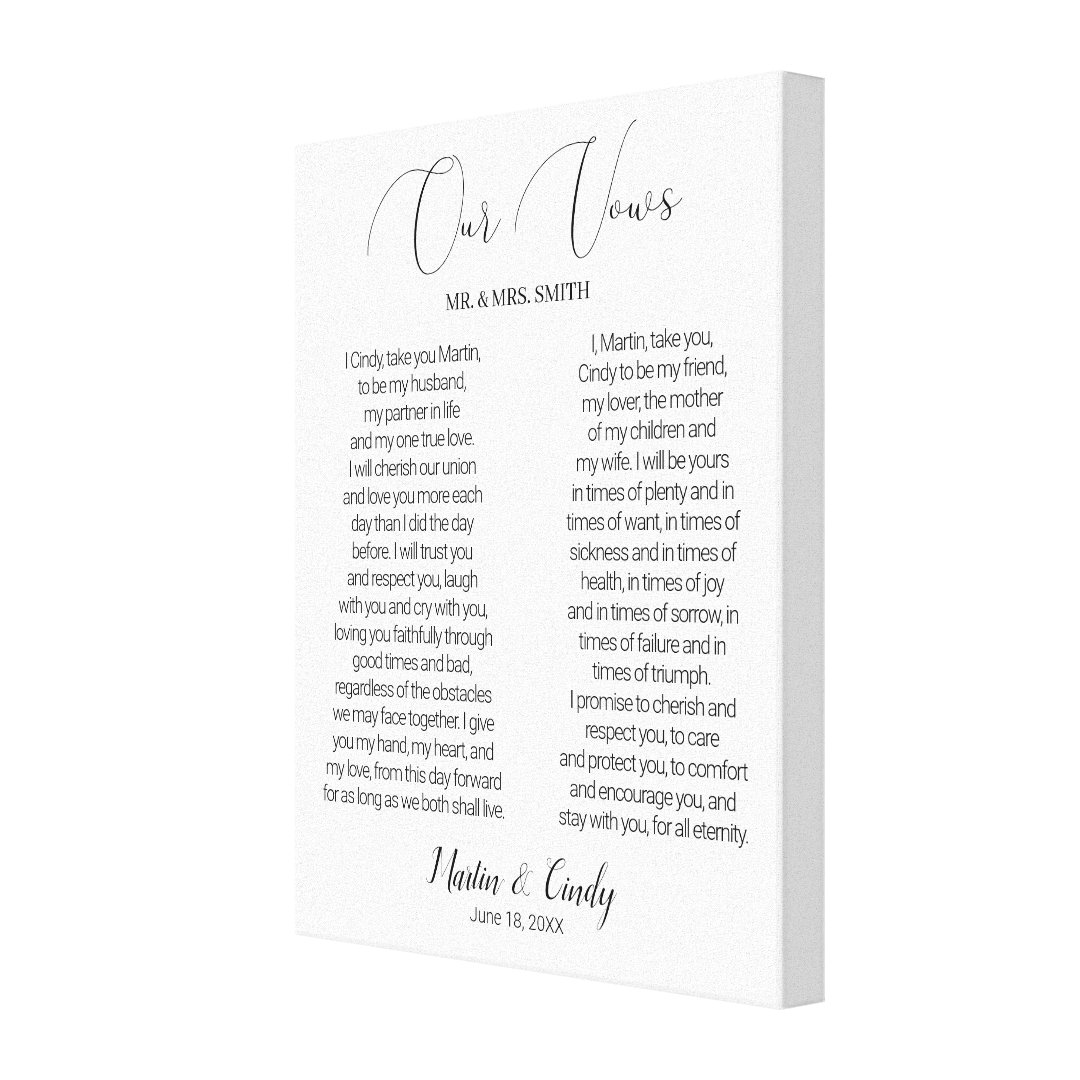 Our Vows
MR. & MRS. SMITH
I Cindy, take you Martin,
to be my husband,
my partner in life
and my one true love.
I will cherish our union
and love you more each
day than I did the day
before. I will trust you
and respect you, laugh
with you and cry with you,
loving you faithfully through
good times and bad,
regardless of the obstacles
we may face together. I give
you my hand, my heart, and
my love, from this day forward
for as long as we both shall live.
I, Martin, take you,
Cindy to be my friend,
my lover, the mother
of my children and
my wife. I will be yours
in times of plenty and in
times of want, in times of
sickness and in times of
health, in times of joy
and in times of sorrow, in
times of failure and in
times of triumph.
I promise to cherish and
respect you, to care
and protect you, to comfort
and encourage you, and
stay with you, for all eternity.
Martin & Cindy
June 18, 20XX